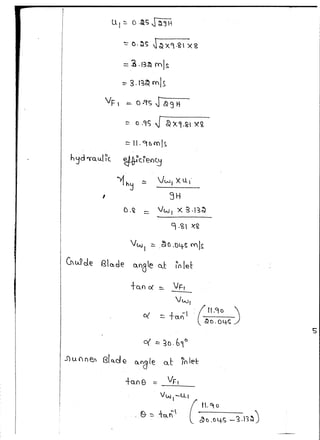 u₁ = 0.25 √2gH
= 0.25 √2×9.81×8
= 3.132 m|s
= 3.132 m|s
VF₁ = 0.95 √2gH
= 0.95 √2×9.81×8
= 11.90 m|s
hydraulic efficiency
ηhy = Vω₁ × u₁ / gH
0.8 = Vω₁ × 3.132 / 9.81 × 8
Vω₁ = 20.045 m|s
Guide Blade angle at inlet
tan α = VF₁ / Vω₁
α = tan⁻¹ (11.90 / 20.045)
α = 30.69°
Runner Blade angle at inlet
tan θ = VF₁ / Vω₁-u₁
θ = tan⁻¹ (11.90 / 20.045 - 3.132)
5